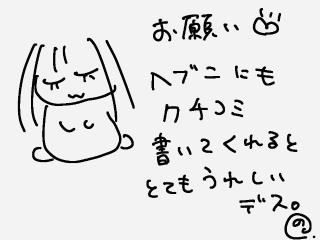 お願い
ヘブンにも
クチコミ
書いてくれると
とてもうれしい
デス。
の